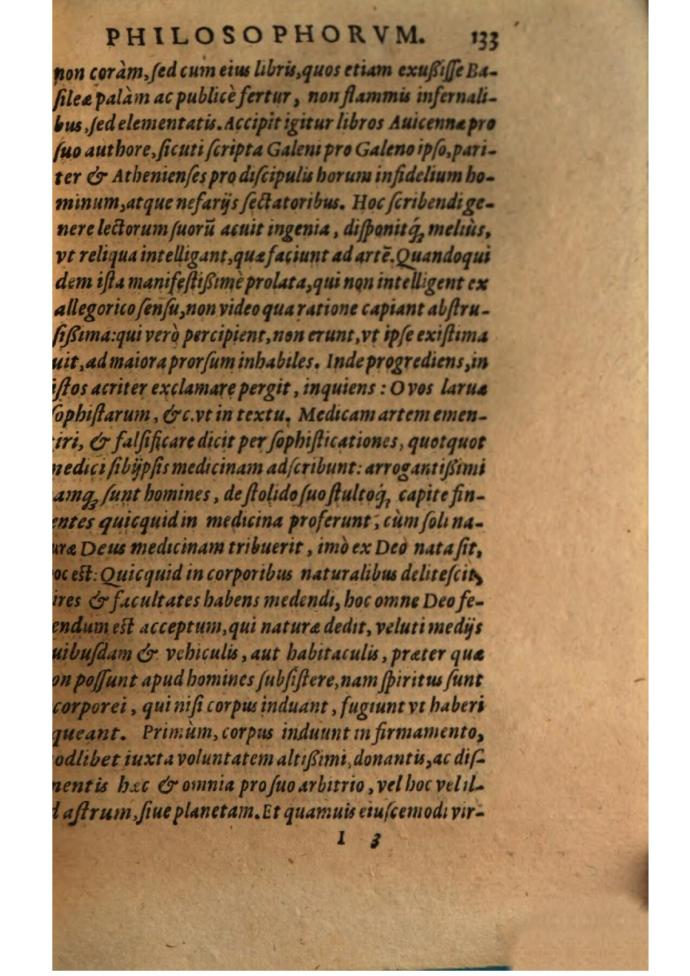 PHILOSOPHORVM. 133
non coràm, sed cum eius libris, quos etiam exußisse Ba-
sileæ palàm ac publicè fertur, non flammis infernali-
bus, sed elementatis. Accipit igitur libros Auicennæ pro
suo authore, sicuti scripta Galeni pro Galeno ipso, pari-
ter & Athenienses pro discipulis horum infidelium ho-
minum, atque nefarijs sectatoribus. Hoc scribendi ge-
nere lectorum suorũ acuit ingenia, disponitq́; meliùs,
vt reliqua intelligant, quæ faciunt ad artẽ. Quandoqui
dem ista manifestißimè prolata, qui non intelligent ex
allegorico sensu, non video qua ratione capiant abstru-
sißima: qui verò percipient, non erunt, vt ipse existima
uit, ad maiora prorsum inhabiles. Inde progrediens, in
istos acriter exclamare pergit, inquiens: O vos laruæ
sophistarum, &c. vt in textu. Medicam artem emen-
iri, & falsificare dicit per sophisticationes, quotquot
nedici sibijpsis medicinam adscribunt: arrogantißimi
amq; sunt homines, de stolido suo stultoq́; capite fin-
entes quicquid in medicina proferunt, cùm soli na-
uræ Deus medicinam tribuerit, imò ex Deo nata sit,
oc est: Quicquid in corporibus naturalibus delitescit,
ires & facultates habens medendi, hoc omne Deo fe-
endum est acceptum, qui naturæ dedit, veluti medijs
uibusdam & vehiculis, aut habitaculis, præter quæ
on possunt apud homines subsistere, nam spiritus sunt
corporei, qui nisi corpus induant, fugiunt vt haberi
queant. Primùm, corpus induunt in firmamento,
odlibet iuxta voluntatem altißimi, donantis, ac dis-
nentis hæc & omnia pro suo arbitrio, vel hoc vel il-
d astrum, siue planetam. Et quamuis eiuscemodi vir-
I 3